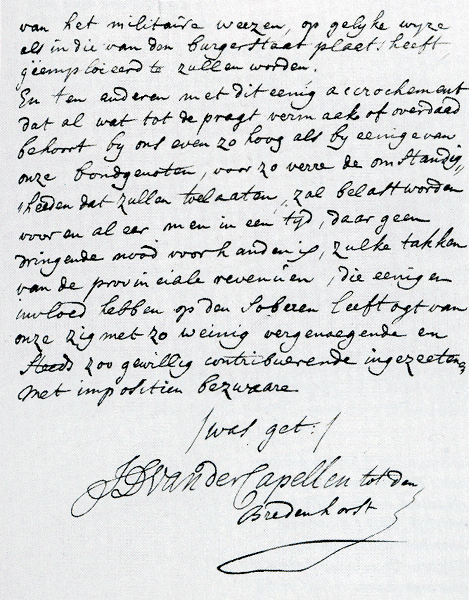 van het militaire weezen, op gelyke wyze
als in die van den burgerstaat plaats heeft
gëemploieerd te zullen worden.
En ten anderen met dit eenig accrochement
dat al wat tot de pragt vermaak of overdaad
behoort by ons even zo hoog als by eenige van
onze bondgenoten, voor zo verre de omstandig„
„heeden dat zullen toelaaten, zal belast worden
voor en al eer men in een tyd, daar geen
dringende nood voorhanden is, zulke takken
van de provinciale revenuën, die eenigen
invloed hebben op den soberen leeftogt van
onze zig met zo weinig vergenoegende en
steeds zoo gewillig contribueerende ingezeetene
met impositien bezwaare
/was get:/
JD van der Capellen tot den
Bredenhorst